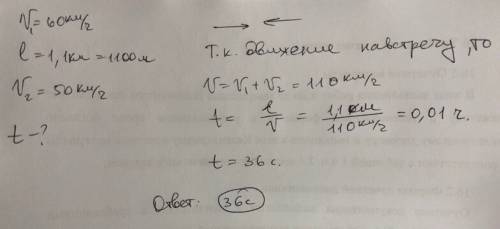 V₁ = 60 км/ч
l = 1,1 км = 1100 м
V₂ = 50 км/ч
t - ?
Т.к. движение навстречу, то
V = V₁ + V₂ = 110 км/ч
t = l/V = 1,1 км / 110 км/ч = 0,01 ч.
t = 36 с.
Ответ: 36 с